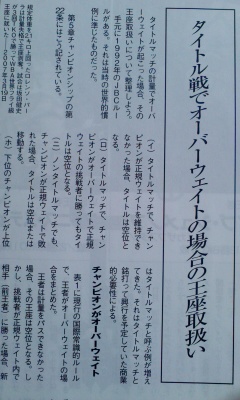 タイトル戦でオーバーウェイトの場合の王座取扱い
タイトルマッチの計量でオーバ
ーウェイトが起こった場合、その
王座取扱いについて整理しよう。
手元に1992年のJBCルー
ルがある。それは当時の世界的慣
例に準じたものだった。
第5章チャンピオンシップの第
22条にはこう記されている。
(イ)タイトルマッチで、チャン
ピオンが正規ウェイトを維持でき
なかった場合、タイトルは空位と
なる。
(ロ)タイトルマッチで、チャン
ピオンがオーバーウェイトで正規
ウェイトの挑戦者に勝ってもタイ
トルは空位となる。
(ニ)ノンタイトルマッチでも、
チャンピオンが正規ウェイトで敗
れた場合、タイトルは空位または
移動する。
(ホ)下位のチャンピオンが上位
はタイトルマッチと呼ぶ例が増え
てきた。それはタイトルマッチと
銘打って興行を予定していた商業
的必要性による。
チャンピオンがオーバーウェイト
表1に現行の国際常識的ルール
で、王者がオーバーウェイトの場
合をまとめた。
王者は計量をパスできなかった
場合、その王座は空位となる。し
かし、挑戦者が正規ウェイト内で
相手(前王者)に勝った場合、新
王座に就いた＝2007年3月19日